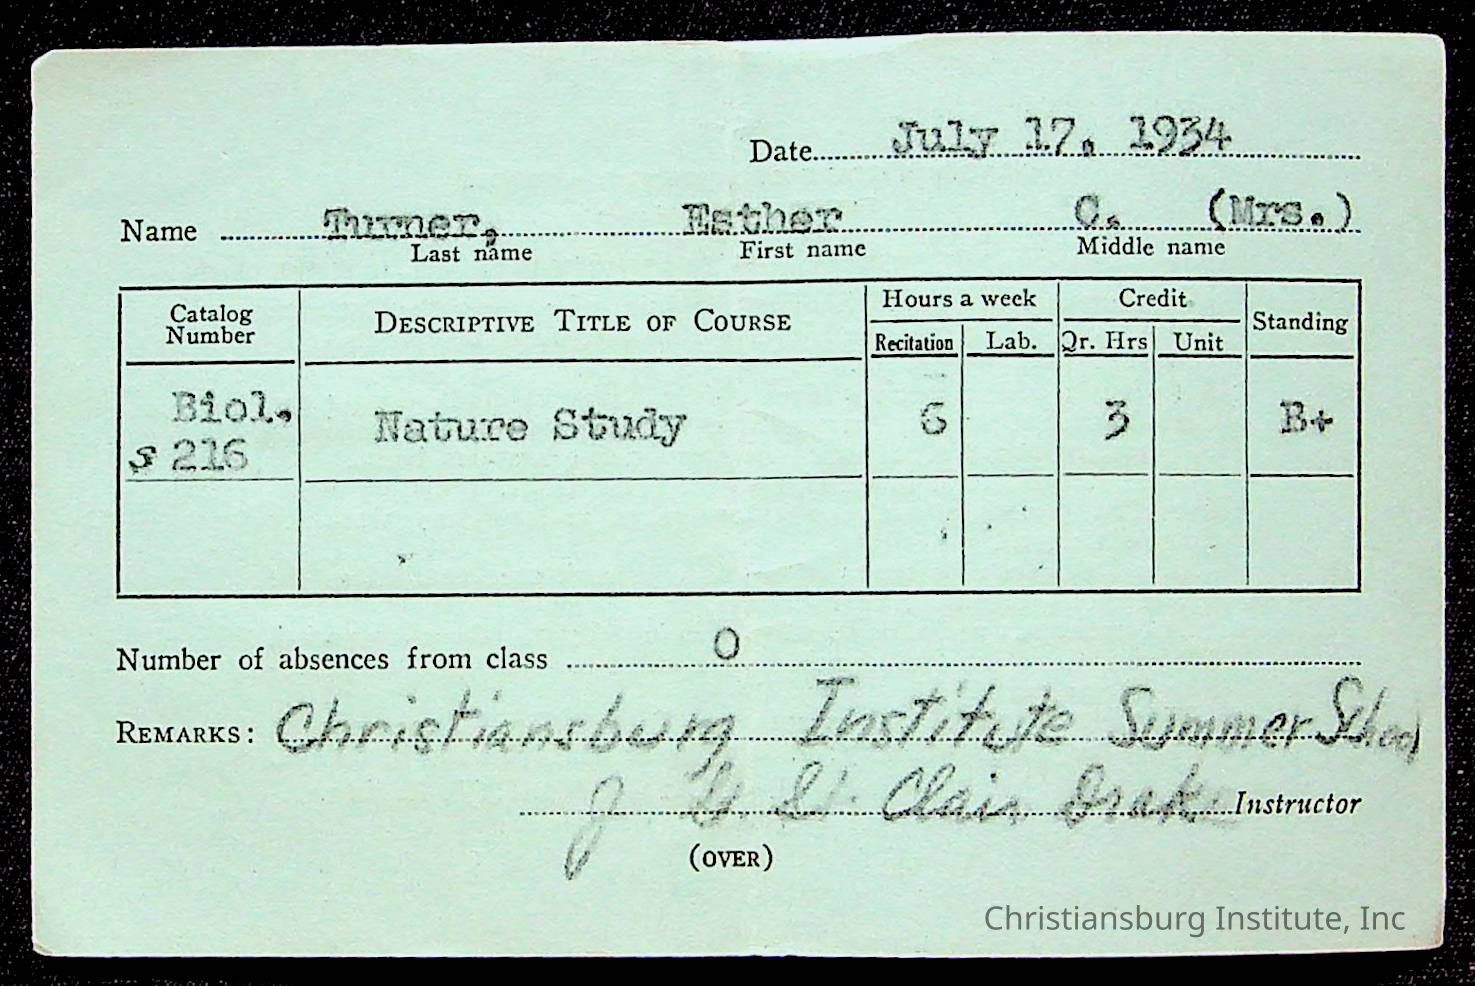 Date July 17, 1934
Name Turner, Esther C. (Mrs.)
Last name First name Middle name
Catalog Number DESCRIPTIVE TITLE OF COURSE Hours a week Credit Standing
Recitation Lab. Qr. Hrs Unit
Biol. s 216 Nature Study 6 3 B+
Number of absences from class 0
REMARKS: Christiansburg Institute Summer School
J G St. Clair Drake Instructor
(OVER)
Christiansburg Institute, Inc